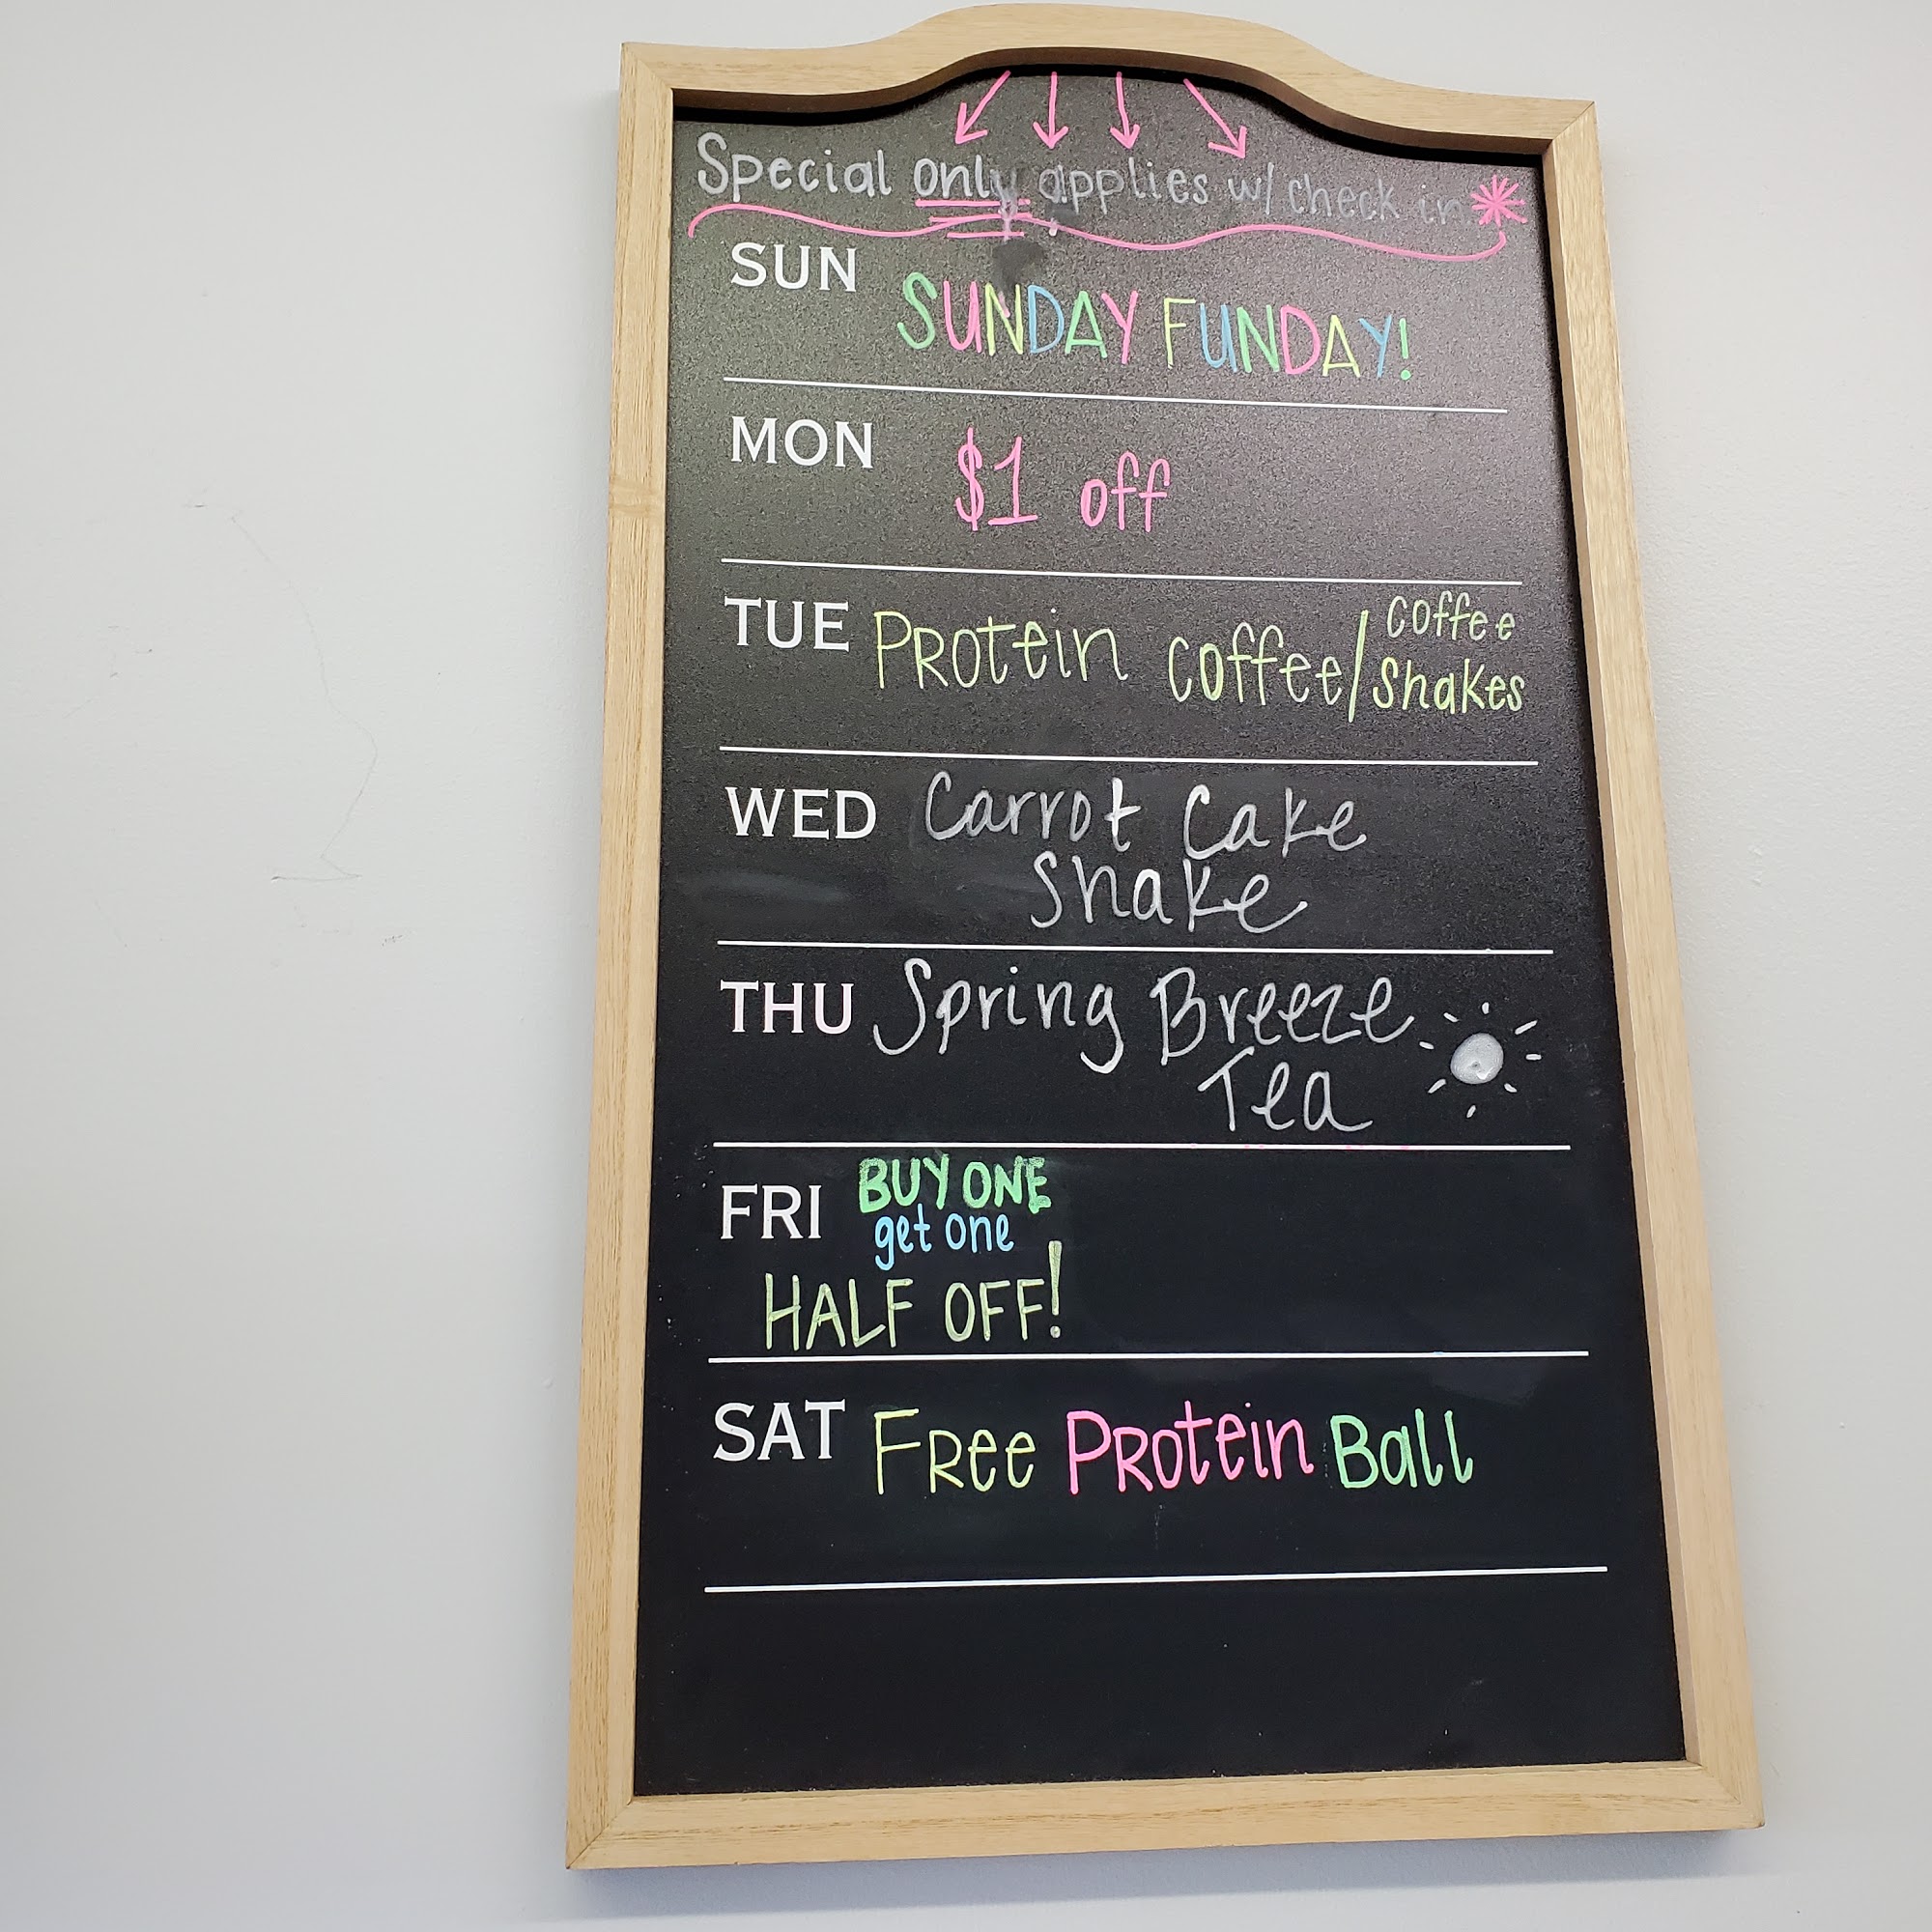 Special only applies w/ check in
SUN
SUNDAY FUNDAY!
MON
$1 off
TUE
Protein coffee/coffee
shakes
WED
Carrot Cake
Shake
THU
Spring Breeze
Tea
FRI
BUY ONE
get one
HALF OFF!
SAT
Free Protein Ball